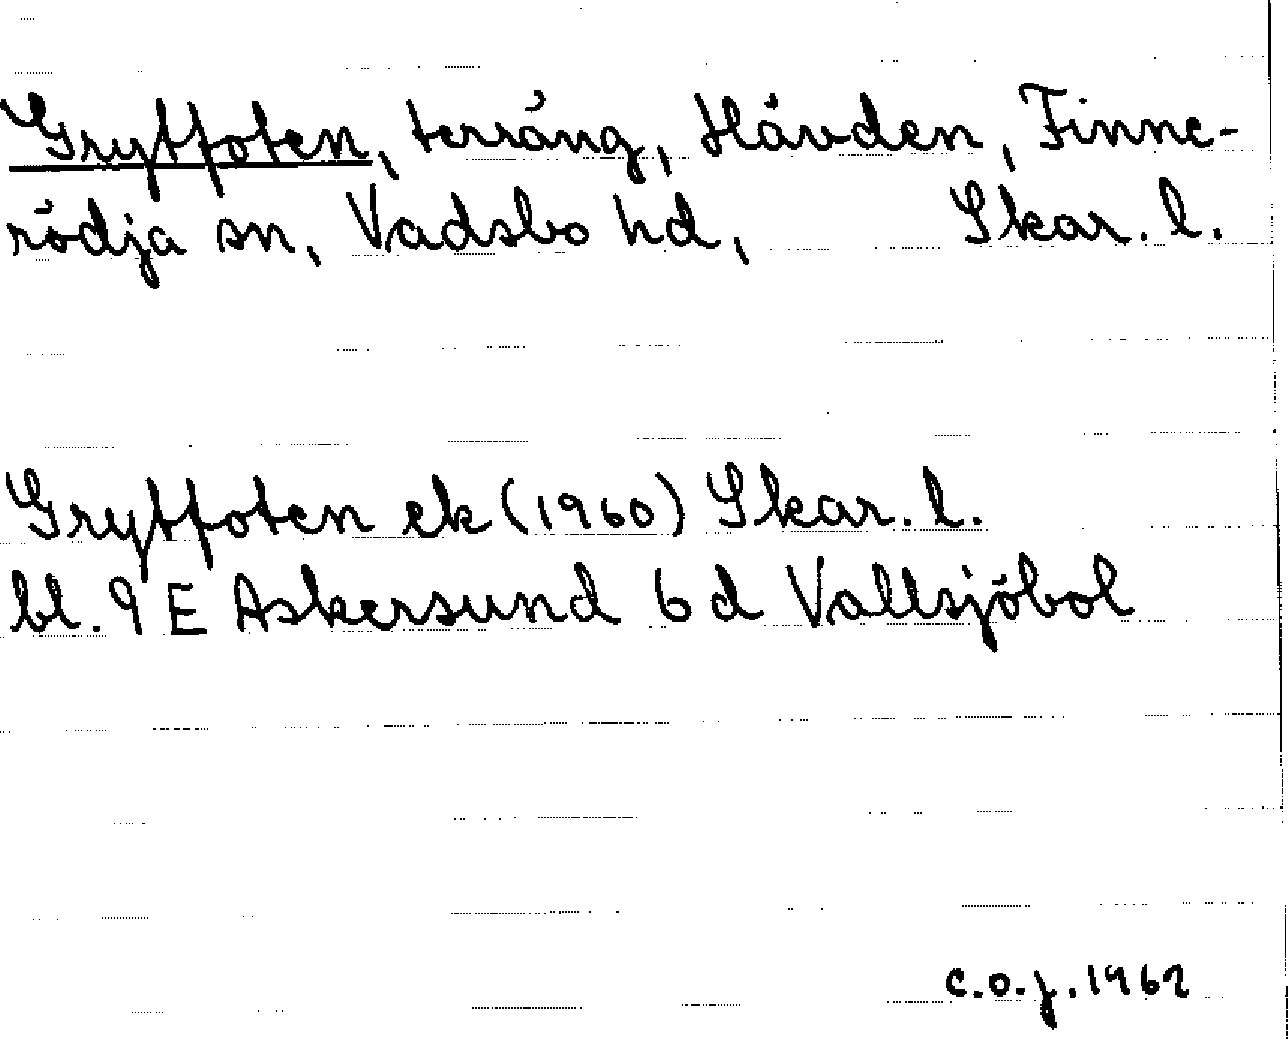 Grytfoten, terräng, Hävden, Finne-
rödja sn, Vadsbo hd, Skar. l.
Grytfoten ek (1960) Skar. l.
bl. 9 E Askersund 6 d Vallsjöbol
c.o.j. 1962